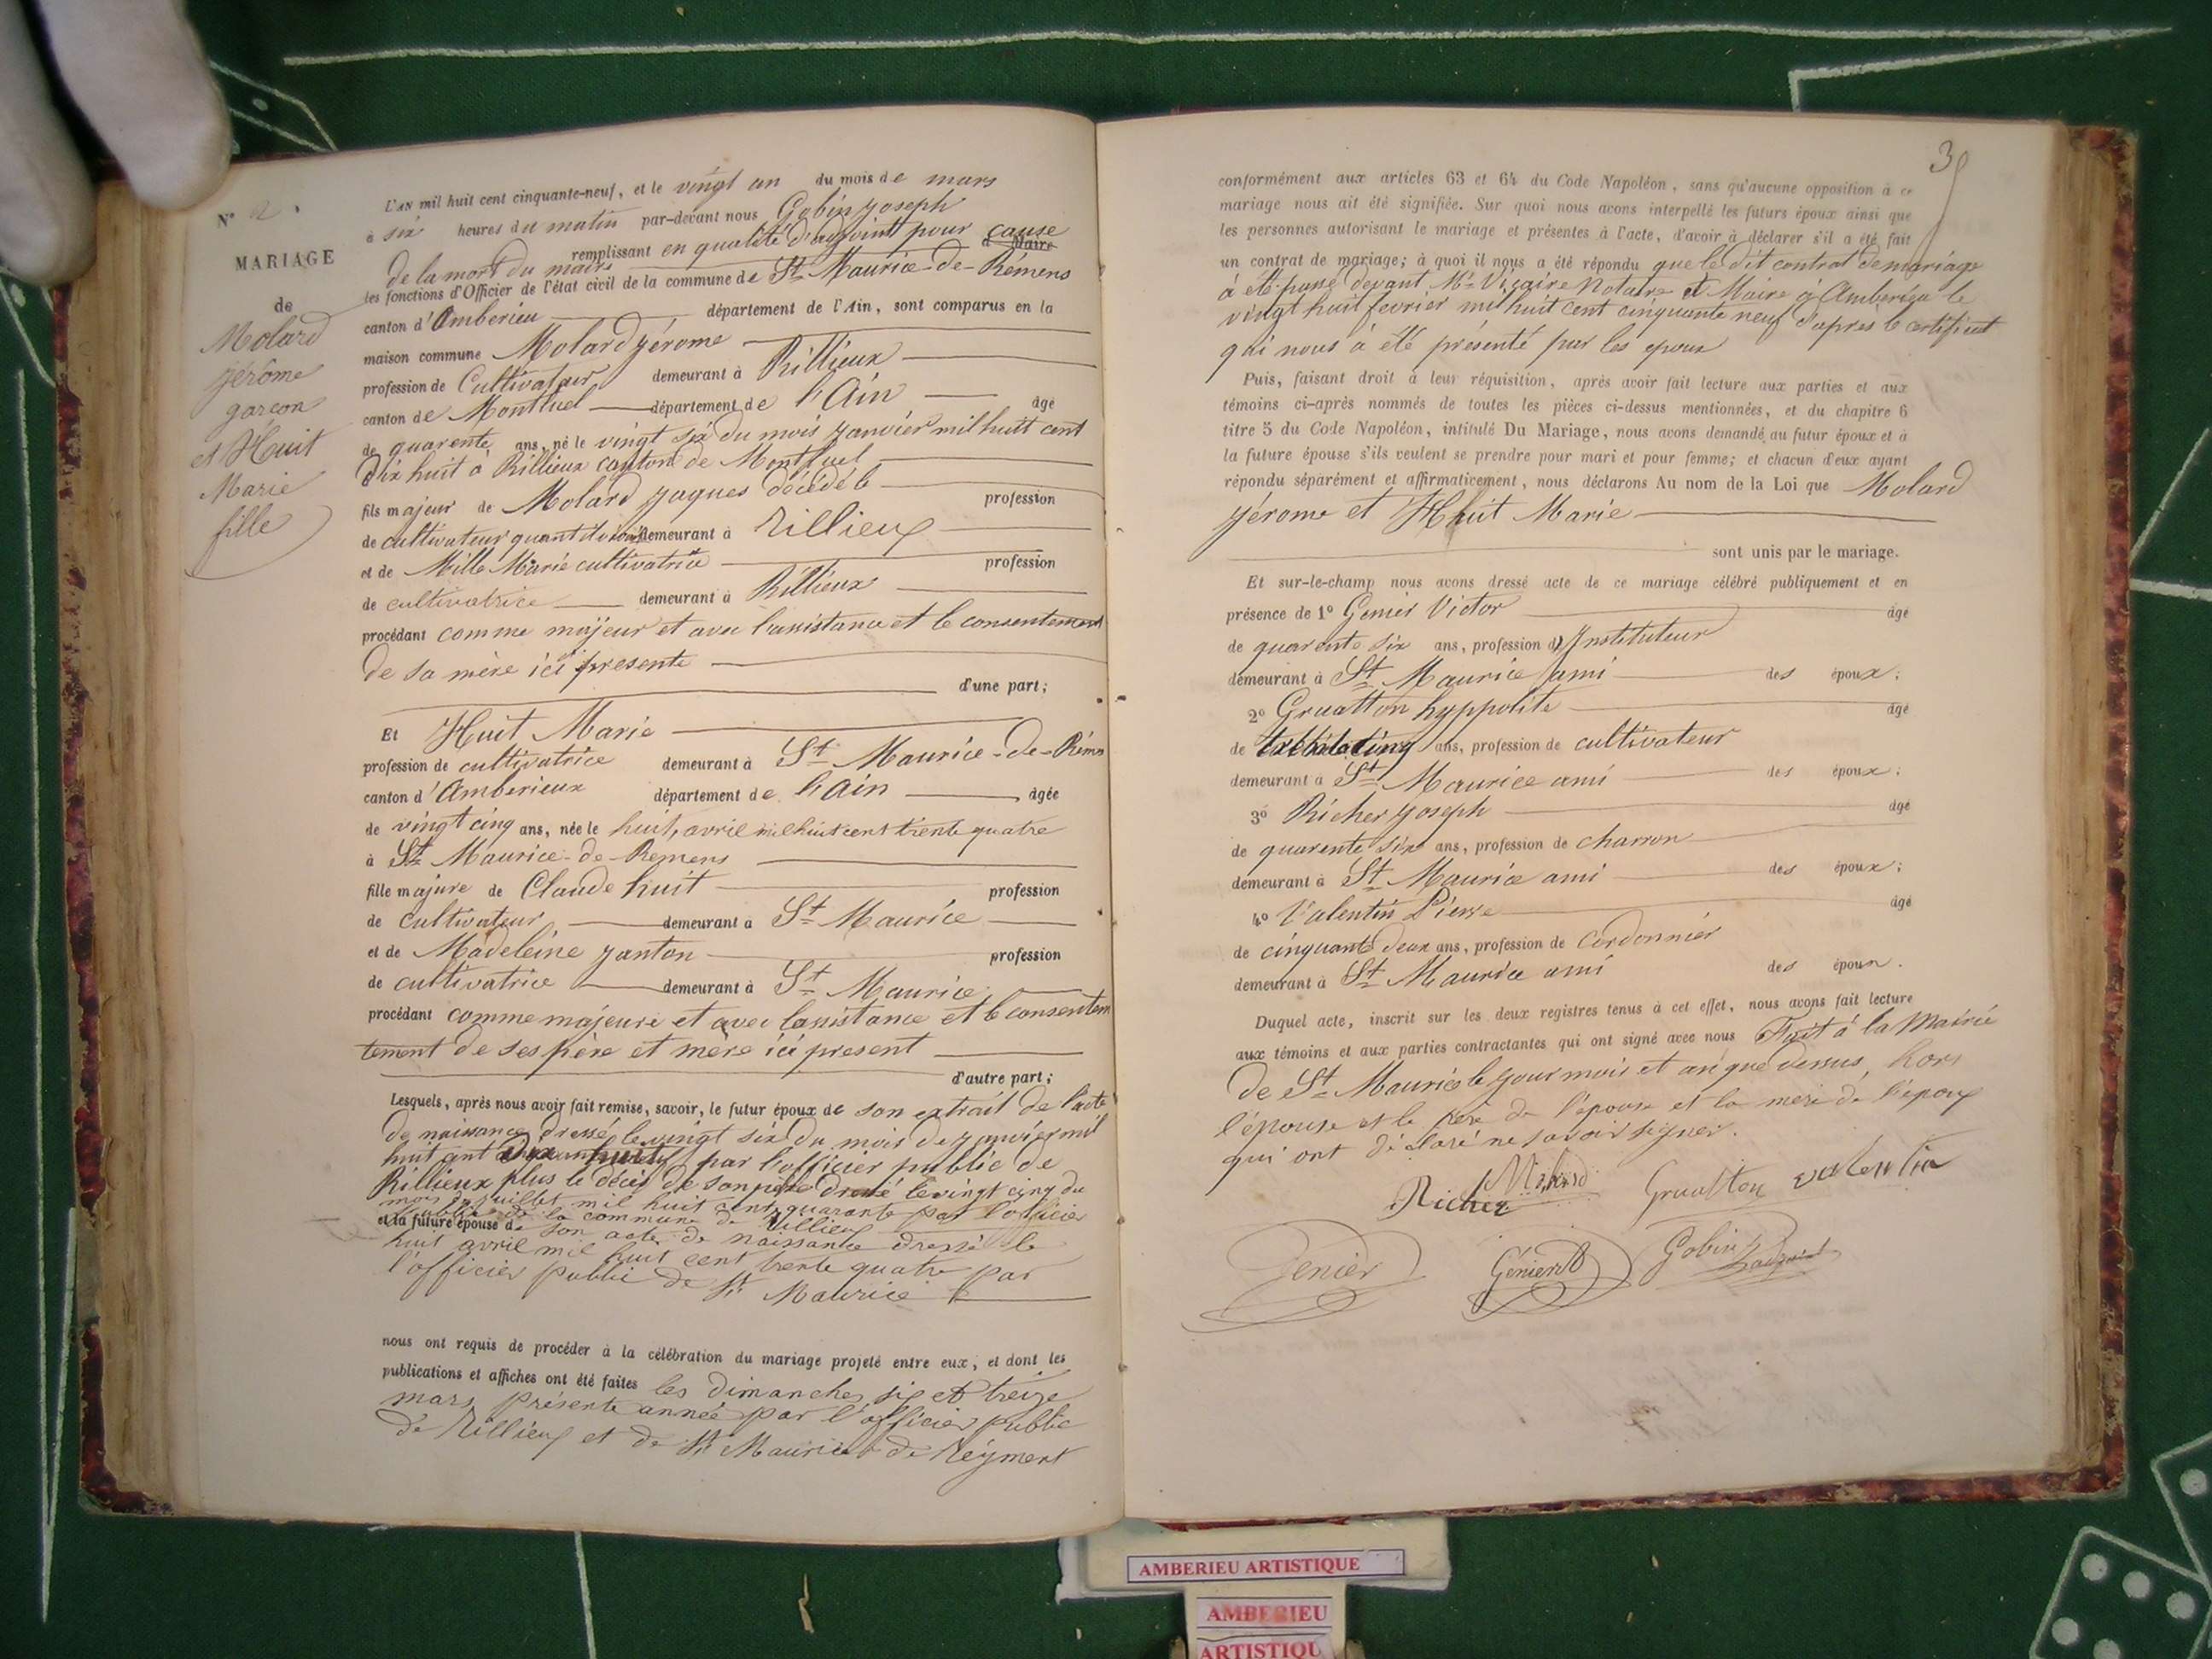 N° 2.
MARIAGE
de
Molard
jérôme
garcon
et Huit
Marie
fille
L'AN mil huit cent cinquante-neuf, et le vingt un du mois de mars
à six heures du matin par-devant nous Gobin joseph
remplissant en qualité d'adjoint pour cause
d Maire
de la mort du maire
les fonctions d'Officier de l'état civil de la commune de St Maurice-de-Rémens
canton d'Ambérieu département de l'Ain, sont comparus en la
maison commune Molard jérome
profession de Cultivateur demeurant à Rillieux
canton de Montluel département de l'Ain âgé
de quarente ans, né le vingt six du mois janvier mil huit cent
dix huit à Rillieux canton de Montluel
fils majeur de Molard jaques décédé le profession
de cultivateur quant il vivait demeurant à Rillieux
et de Mille Marie cultivatrice profession
de cultivatrice demeurant à Rillieux
procédant comme majeur et avec l'assistance et le consentement
de sa mère ici presente
d'une part;
Et Huit Marie
profession de cultivatrice demeurant à St Maurice-de-Rémens
canton d'Amberieux département de l'Ain âgée
de vingt cinq ans, née le huit, avril mil huit cent trente quatre
à St Maurice-de-Remens
fille majure de Claude huit profession
de cultivateur demeurant à St Maurice
et de Madeleine janton profession
de cultivatrice demeurant à St Maurice
procédant comme majeure et avec lassistance et le consentem
tement de ses père et mère ici present
d'autre part;
Lesquels, après nous avoir fait remise, savoir, le futur époux de son extrait de l'acte
de naissance dressé le vingt six du mois de janvier mil
huit cent dix huit par l'officier public de
Rillieux plus le décès de son père dressé le vingt cinq du
mois de juillet mil huit cent quarante par l'officier
public de la commune de Rillieux
et la future épouse de son acte de naissance dressé le
huit avril mil huit cent trente quatre par
l'officier public de St Maurice
nous ont requis de procéder à la célébration du mariage projeté entre eux, et dont les
publications et affiches ont été faites les dimanches six et treize
mars présente année par l'officier public
de Rillieux et de St Maurice de Réyment
3
conformément aux articles 63 et 64 du Code Napoléon, sans qu'aucune opposition à ce
mariage nous ait été signifiée. Sur quoi nous avons interpellé les futurs époux ainsi que
les personnes autorisant le mariage et présentes à l'acte, d'avoir à déclarer s'il a été fait
un contrat de mariage; à quoi il nous a été répondu que le dit contrat de mariage
à été passé devant Me Vicaire Notaire et Maire à Amberieu le
vingt huit fevrier mil huit cent cinquante neuf d'après le certificat
qui nous à été présenté par les epoux
Puis, faisant droit à leur réquisition, après avoir fait lecture aux parties et aux
témoins ci-après nommés de toutes les pièces ci-dessus mentionnées, et du chapitre 6
titre 5 du Code Napoléon, intitulé Du Mariage, nous avons demandé au futur époux et à
la future épouse s'ils veulent se prendre pour mari et pour femme; et chacun d'eux ayant
répondu séparément et affirmativement, nous déclarons Au nom de la Loi que Molard
jérome et Huit Marie
sont unis par le mariage.
Et sur-le-champ nous avons dressé acte de ce mariage célébré publiquement et en
présence de 1° Genier Victor âgé
de quarente six ans, profession d'Instituteur
demeurant à St Maurice ami des époux;
2° Gruatton hyppolite âgé
de ans, profession de cultivateur
demeurant à St Maurice ami des époux;
3° Richer joseph âgé
de quarente six ans, profession de charron
demeurant à St Maurice ami des époux;
4° Valentin Pierre âgé
de cinquante deux ans, profession de cordonnier
demeurant à St Maurice ami des époux.
Duquel acte, inscrit sur les deux registres tenus à cet effet, nous avons fait lecture
aux témoins et aux parties contractantes qui ont signé avec nous Fait à la Mairie
de St Maurice le jour mois et an que dessus, hors
l'épouse et le père de l'épouse et la mere de l'époux
qui ont déclaré ne savoir signer.
Richer Molard Gruatton valentin
Genier Génier Gobin
AMBERIEU ARTISTIQUE
AMBERIEU
ARTISTIQU